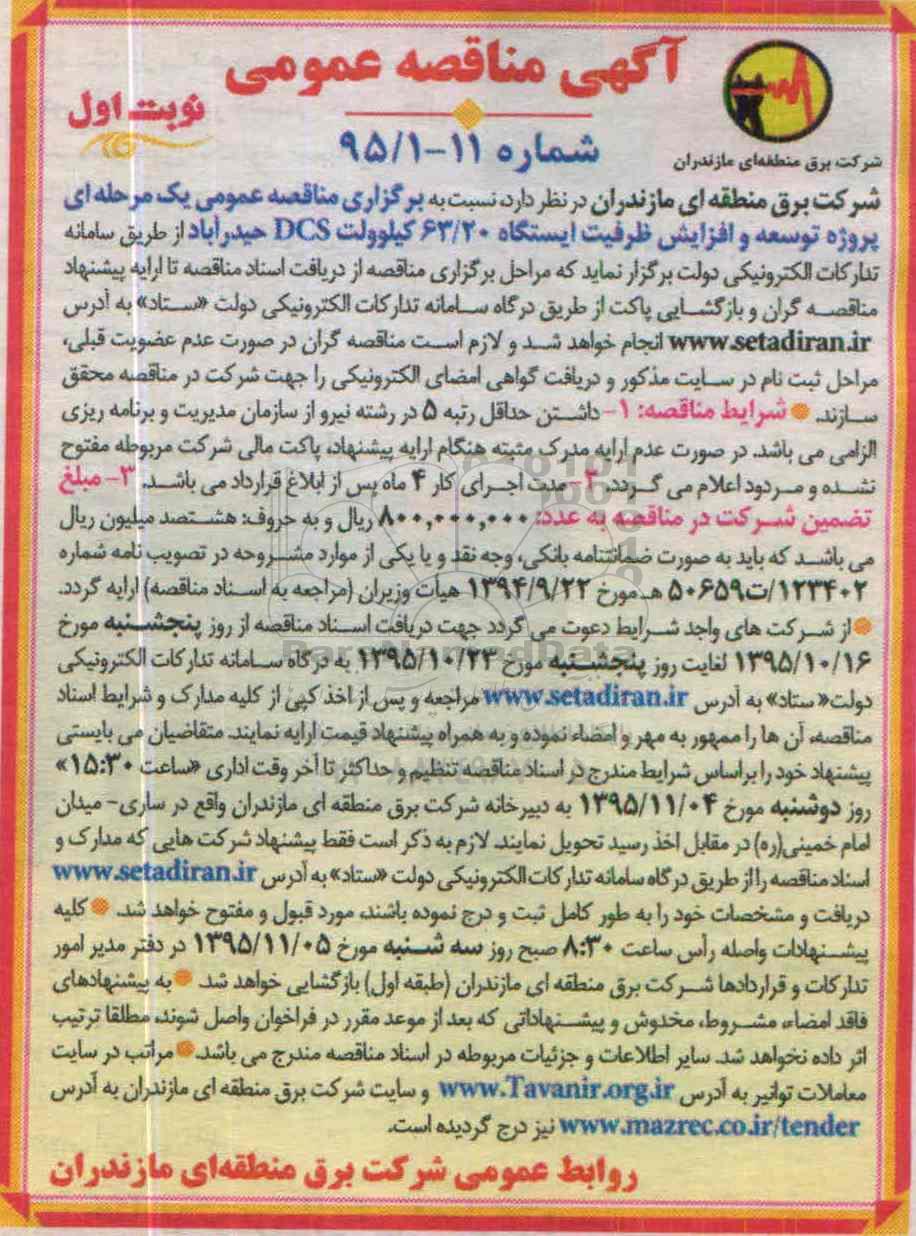 آگهی مناقصه عمومی
نوبت اول
شماره ۱۱-۹۵/۱
شرکت برق منطقه‌ای مازندران
شرکت برق منطقه ای مازندران در نظر دارد، نسبت به برگزاری مناقصه عمومی یک مرحله ای
پروژه توسعه و افزایش ظرفیت ایستگاه ۶۳/۲۰ کیلوولت DCS حیدرآباد از طریق سامانه
تدارکات الکترونیکی دولت برگزار نماید که مراحل برگزاری مناقصه از دریافت اسناد مناقصه تا ارایه پیشنهاد
مناقصه گران و بازگشایی پاکت از طریق درگاه سامانه تدارکات الکترونیکی دولت «ستاد» به آدرس
www.setadiran.ir انجام خواهد شد و لازم است مناقصه گران در صورت عدم عضویت قبلی،
مراحل ثبت نام در سایت مذکور و دریافت گواهی امضای الکترونیکی را جهت شرکت در مناقصه محقق
سازند. شرایط مناقصه: ۱- داشتن حداقل رتبه ۵ در رشته نیرو از سازمان مدیریت و برنامه ریزی
الزامی می باشد. در صورت عدم ارایه مدرک مثبته هنگام ارایه پیشنهاد، پاکت مالی شرکت مربوطه مفتوح
نشده و مردود اعلام می گردد. ۲- مدت اجرای کار ۴ ماه پس از ابلاغ قرارداد می باشد. ۳- مبلغ
تضمین شرکت در مناقصه به عدد: ۸۰۰,۰۰۰,۰۰۰ ریال و به حروف: هشتصد میلیون ریال
می باشد که باید به صورت ضمانتنامه بانکی، وجه نقد و یا یکی از موارد مشروحه در تصویب نامه شماره
۱۲۳۴۰۲/ت۵۰۶۵۹ هـ مورخ ۱۳۹۴/۹/۲۲ هیأت وزیران (مراجعه به اسناد مناقصه) ارایه گردد.
از شرکت های واجد شرایط دعوت می گردد جهت دریافت اسناد مناقصه از روز پنجشنبه مورخ
۱۳۹۵/۱۰/۱۶ لغایت روز پنجشنبه مورخ ۱۳۹۵/۱۰/۲۳ به درگاه سامانه تدارکات الکترونیکی
دولت «ستاد» به آدرس www.setadiran.ir مراجعه و پس از اخذ کپی از کلیه مدارک و شرایط اسناد
مناقصه، آن ها را ممهور به مهر و امضاء نموده و به همراه پیشنهاد قیمت ارایه نمایند. متقاضیان می بایستی
پیشنهاد خود را براساس شرایط مندرج در اسناد مناقصه تنظیم و حداکثر تا آخر وقت اداری «ساعت ۱۵:۳۰»
روز دوشنبه مورخ ۱۳۹۵/۱۱/۰۴ به دبیرخانه شرکت برق منطقه ای مازندران واقع در ساری- میدان
امام خمینی(ره) در مقابل اخذ رسید تحویل نمایند. لازم به ذکر است فقط پیشنهاد شرکت هایی که مدارک و
اسناد مناقصه را از طریق درگاه سامانه تدارکات الکترونیکی دولت «ستاد» به آدرس www.setadiran.ir
دریافت و مشخصات خود را به طور کامل ثبت و درج نموده باشند، مورد قبول و مفتوح خواهد شد. کلیه
پیشنهادات واصله رأس ساعت ۸:۳۰ صبح روز سه شنبه مورخ ۱۳۹۵/۱۱/۰۵ در دفتر مدیر امور
تدارکات و قراردادها شرکت برق منطقه ای مازندران (طبقه اول) بازگشایی خواهد شد. به پیشنهادهای
فاقد امضاء، مشروط، مخدوش و پیشنهاداتی که بعد از موعد مقرر در فراخوان واصل شوند، مطلقا ترتیب
اثر داده نخواهد شد. سایر اطلاعات و جزئیات مربوطه در اسناد مناقصه مندرج می باشد. مراتب در سایت
معاملات توانیر به آدرس www.Tavanir.org.ir و سایت شرکت برق منطقه ای مازندران به آدرس
www.mazrec.co.ir/tender نیز درج گردیده است.
روابط عمومی شرکت برق منطقه‌ای مازندران